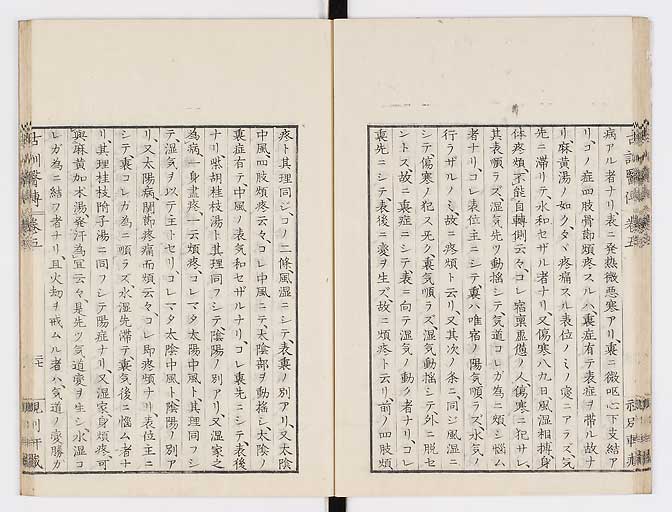 病アル者ナリ表ニ発熱微悪寒アリ、裏ニ微呕心下支結ア
リ、コノ症四肢骨節煩疼スルハ裏症有テ表症ヲ帯ル故ナ
リ麻黄湯ノ如クタヾ疼痛スル表位ノミノ変ニアラズ気
先ニ滞リテ、水和セザル者ナリ、又傷寒八九日風湿相搏身
体疼煩不能自轉側云々、コレ宿稟虚憊ノ人傷寒ニ犯サレ、
其表順ラズ湿気先ツ動揺シテ気道コレガ為ニ煩シ悩ム
者ナリ、コレ表位主ニシテ裏ハ唯宿ノ陽気順ラズ、水気ノ
行ラザルノミ、故ニ疼煩ト云リ、又其次ノ条ニ、同ジ風湿ニ
シテ傷寒ノ犯ス死ク裏気順ラズ、湿気動揺シテ外ニ脱セ
ントス故ニ裏症ニシテ表ニ向テ湿気ノ動ク者ナリ、コレ
裏先ニシテ表後ニ変ヲ生ズ故ニ煩疼ト云リ、前ノ四肢煩
疼ト其理同シコノ二條風湿ニシテ表裏ノ別アリ、又太陰
中風、四肢煩疼云々、コレ中風ニテ、太陰部ヲ動揺シ、太陰ノ
裏症有テ、中風ノ表気和セザルナリ、コレ裏先ニシテ、表後
ナリ柴胡桂枝湯ト其理同フシテ陰陽ノ別アリ、又湿家之
為病、一身盡疼、一云煩疼、コレマタ太陽中風ト、其理同フシ
テ湿気ヲ以テ主トセリ、コレマタ太陰中風ト、陰陽ノ別ア
リ、又太陽病、関節疼痛而煩云々、コレ即疼煩ナリ表位主ニ
シテ裏コレガ為ニ順ラズ、水湿先滞テ、裏気後ニ悩ム者ナ
リ其理桂枝附子湯ニ同フシテ陽症ナリ又湿家身煩疼、可
與麻黄加朮湯、発汗為宜云々、是先ツ気道変ヲ生シ、水湿コ
レガ為ニ結ヲ者ナリ、且火劫ヲ戒ムル者ハ、気道ノ変勝ガ